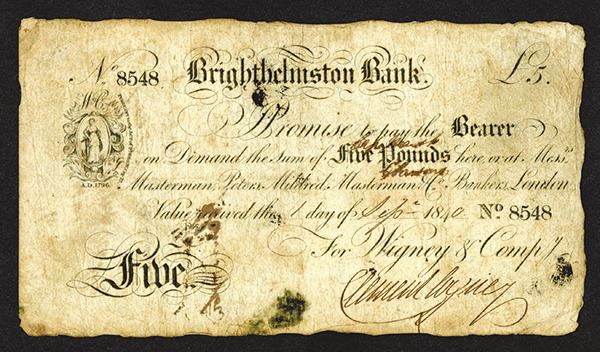 No. 8548 Brighthelmston Bank. £5.
I Promise to pay the Bearer
on Demand the Sum of Five Pounds here, or at Messrs.
Masterman, Peters, Mildred, Masterman, & Co. Bankers, London
Value received this 1 day of Sepr 1840 No 8548
For Wigney & Compy.
Five
Clement Wigney
A.D. 1796.